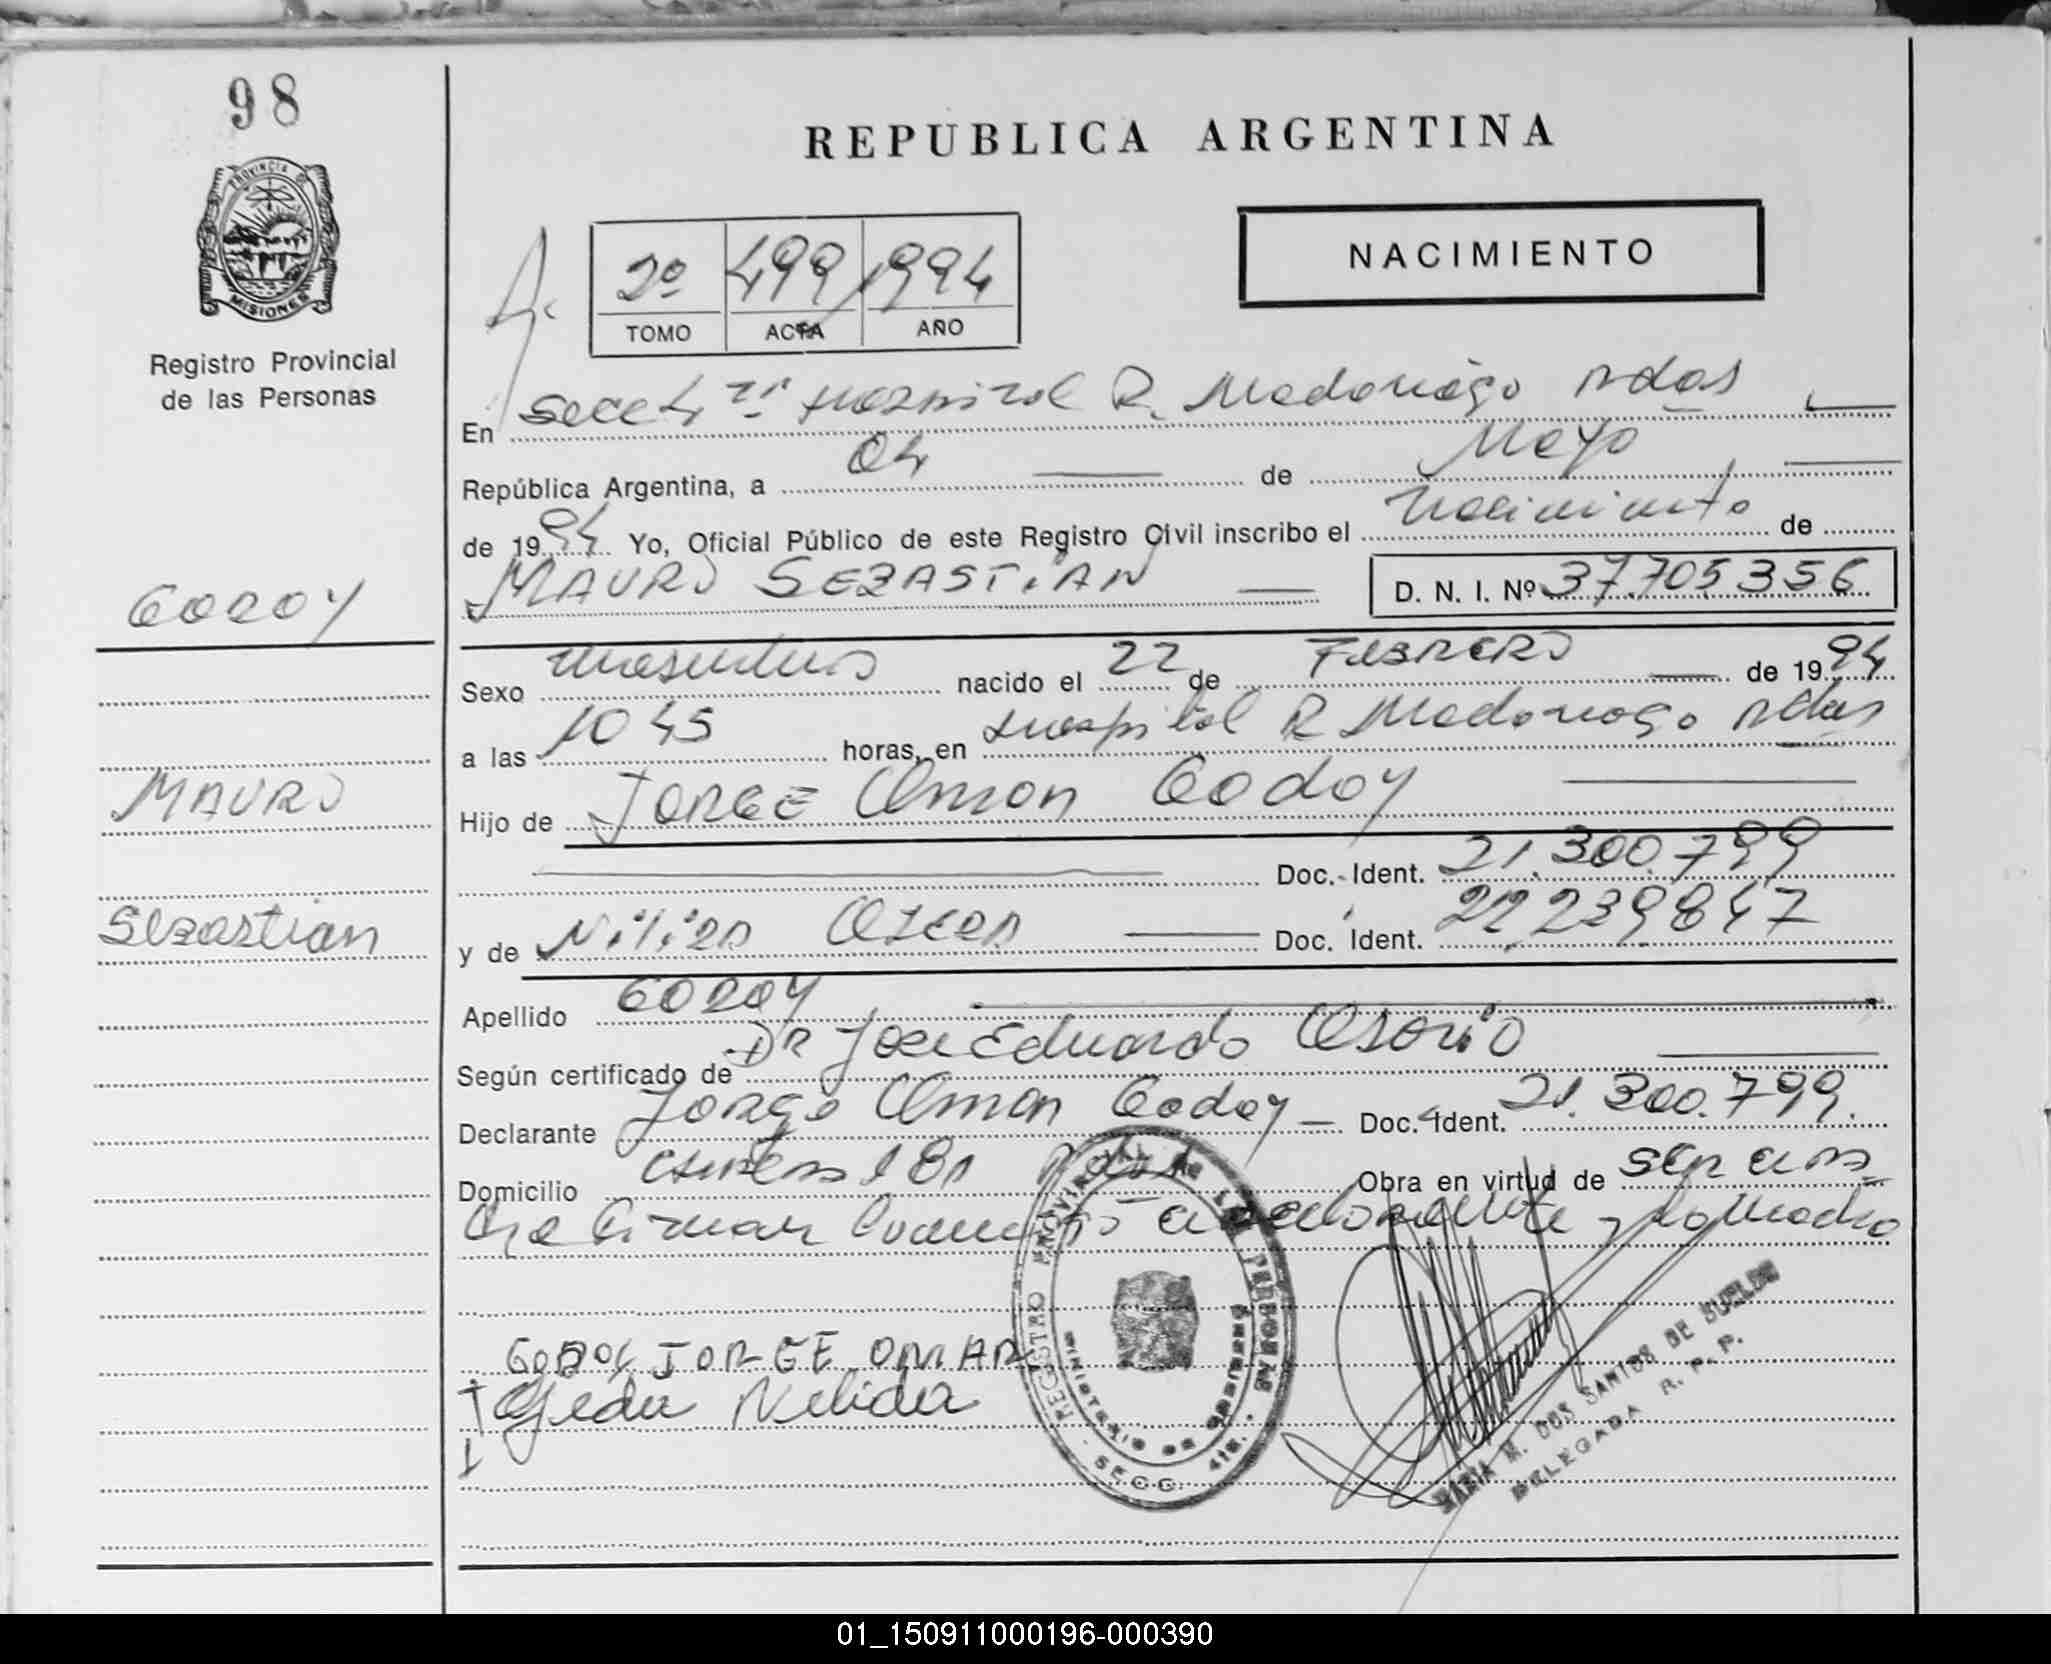 98
REPUBLICA ARGENTINA
PROVINCIA DE
MISIONES
Registro Provincial
de las Personas
NACIMIENTO
2º 499 1994
TOMO ACTA AÑO
En Secc 4ta Hospital R. Madariaga Pdas
República Argentina, a 04 de Mayo
de 1994 Yo, Oficial Público de este Registro Civil inscribo el Nacimiento de
MAURO SEBASTIAN D. N. I. Nº 37.705.356
GODOY
Sexo masculino nacido el 22 de FEBRERO de 1994
a las 10 45 horas, en Hospital R Madariaga Pdas
MAURO
Hijo de JORGE Omar Godoy
Doc. Ident. 21.300.799
Sebastian
y de Nélida Ojeda Doc. Ident. 22.239.847
Apellido GODOY
Según certificado de Dr José Eduardo Osorio
Declarante Jorge Omar Godoy Doc. Ident. 21.300.799.
Domicilio 181 Pdas Obra en virtud de ser
firman y la Madre
GODOY JORGE OMAR
Ojeda Nelida
REGISTRO PROVINCIAL DE LAS PERSONAS
MINISTERIO DE GOBIERNO
SECC. 4ta.
MARIA M. DOS SANTOS DE SUELDO
DELEGADA R. P. P.
01_150911000196-000390